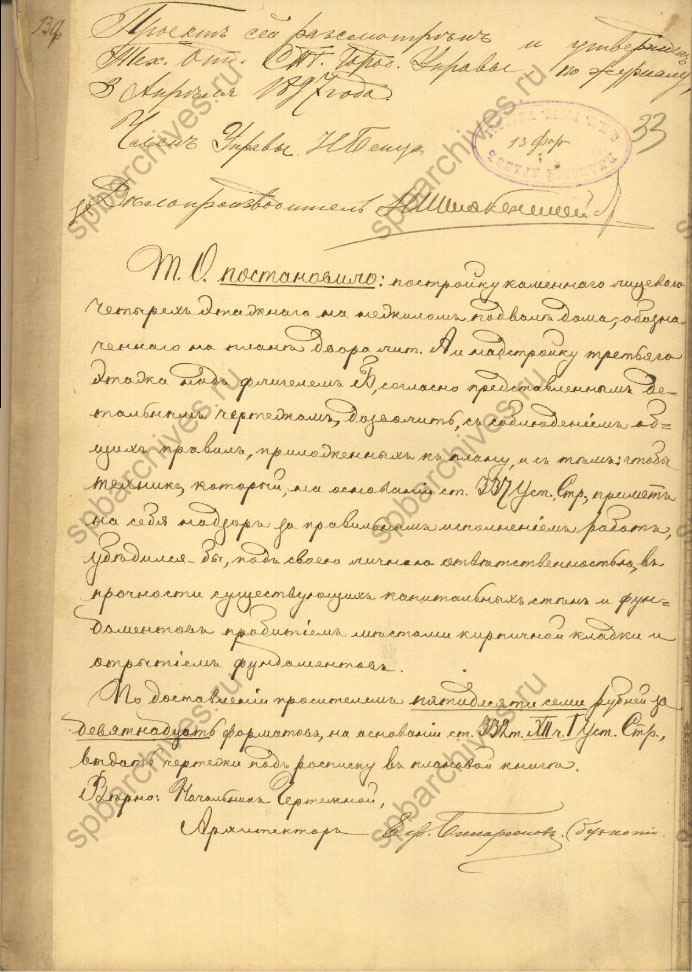 Проектъ сей разсмотрѣнъ и утвержденъ
Тех. Отд. СПб. Город. Управы по журналу,
3 Апрѣля 1897 года.
33
13 фор
Членъ Управы
за Дѣлопроизводитель
Т. О. постановило: постройку каменнаго лицеваго
четырехъ этажнаго на нежиломъ подвалѣ дома, обозна-
ченнаго на планѣ двора лит. А и надстройку третьяго
этажа надъ флигелемъ Б, согласно представленнымъ де-
тальнымъ чертежамъ, дозволить, съ соблюденіемъ об-
щихъ правилъ, приложенныхъ къ плану, и съ тѣмъ: чтобы
техникъ, который, на основаніи ст. 337 Уст. Стр., приметъ
на себя надзоръ за правильнымъ исполненіемъ работъ,
убѣдился-бы, подъ своею личною отвѣтственностью, въ
прочности существующихъ капитальныхъ стѣнъ и фун-
даментовъ пробитіемъ мѣстами кирпичной кладки и
открытіемъ фундаментовъ.
По доставленіи просителемъ пятидесяти семи рублей за
девятнадцать форматовъ, на основаніи ст. 332 т. XII ч. I Уст. Стр.,
выдать чертежи подъ росписку въ плановой книгѣ.
Вѣрно: Начальникъ Чертежной,
Архитекторъ
spbarchives.ru
spbarchives.ru
spbarchives.ru
spbarchives.ru
spbarchives.ru
spbarchives.ru